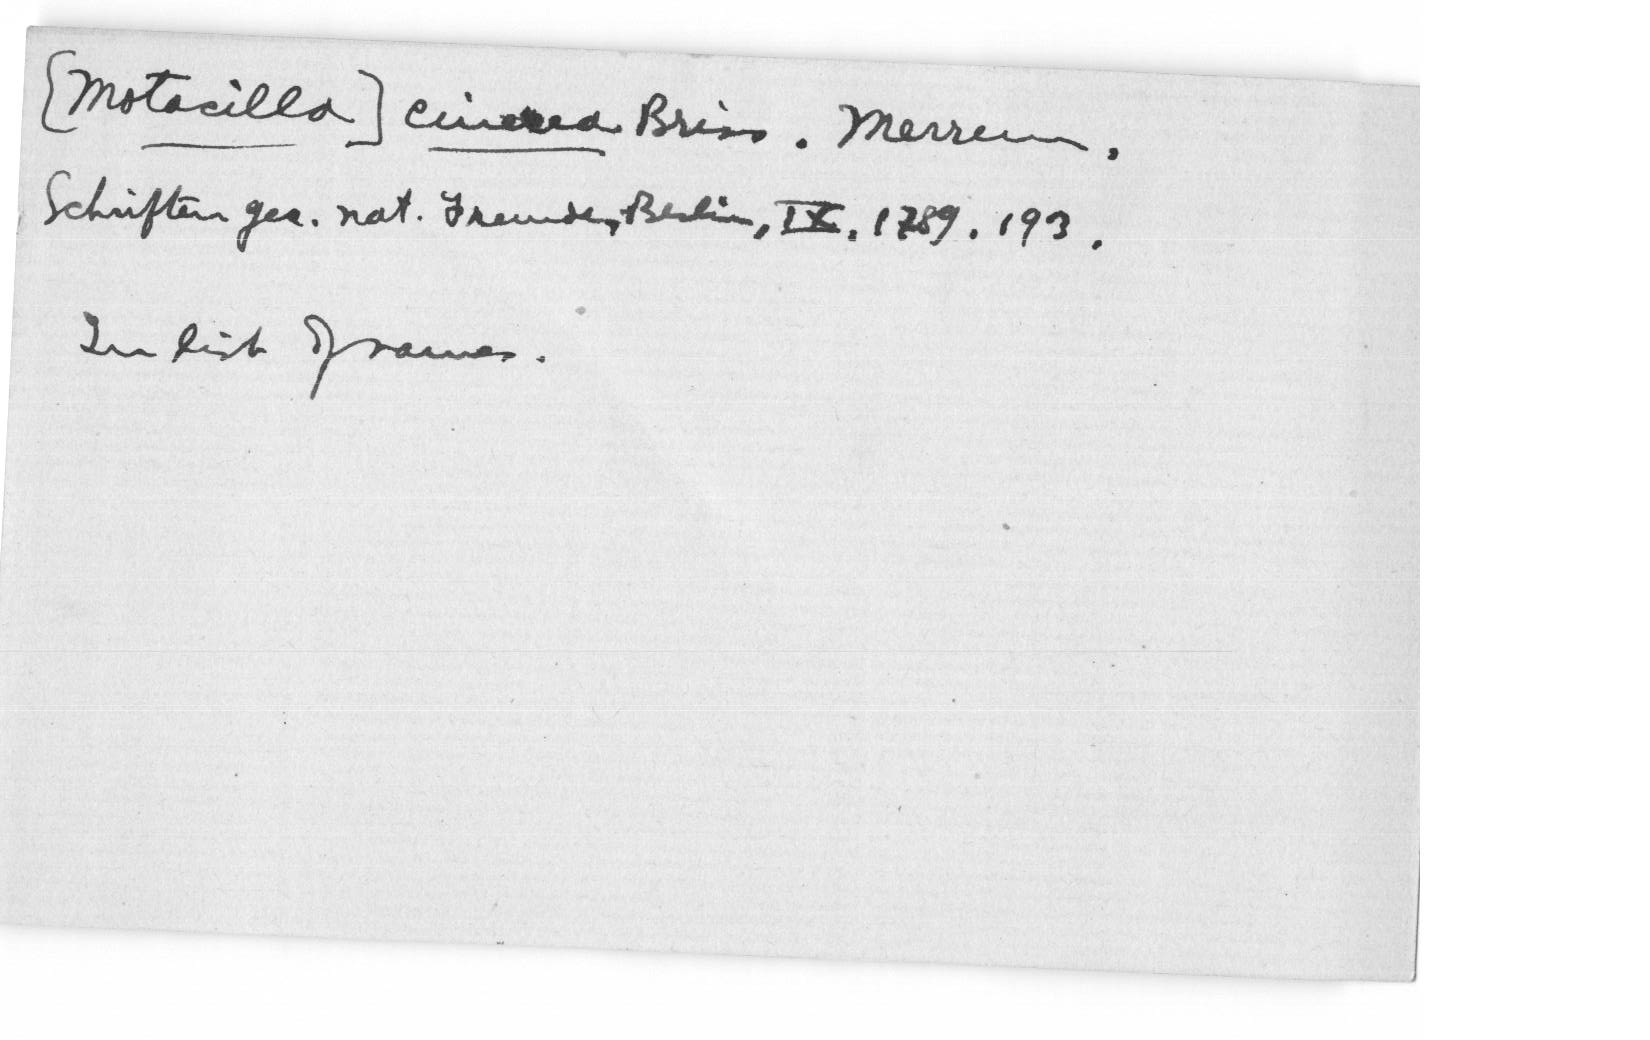 [Motacilla] cinerea Briss. Merrem,
Schriften ges. nat. Freunde, Berlin, IX, 1789. 193.
In list of names.